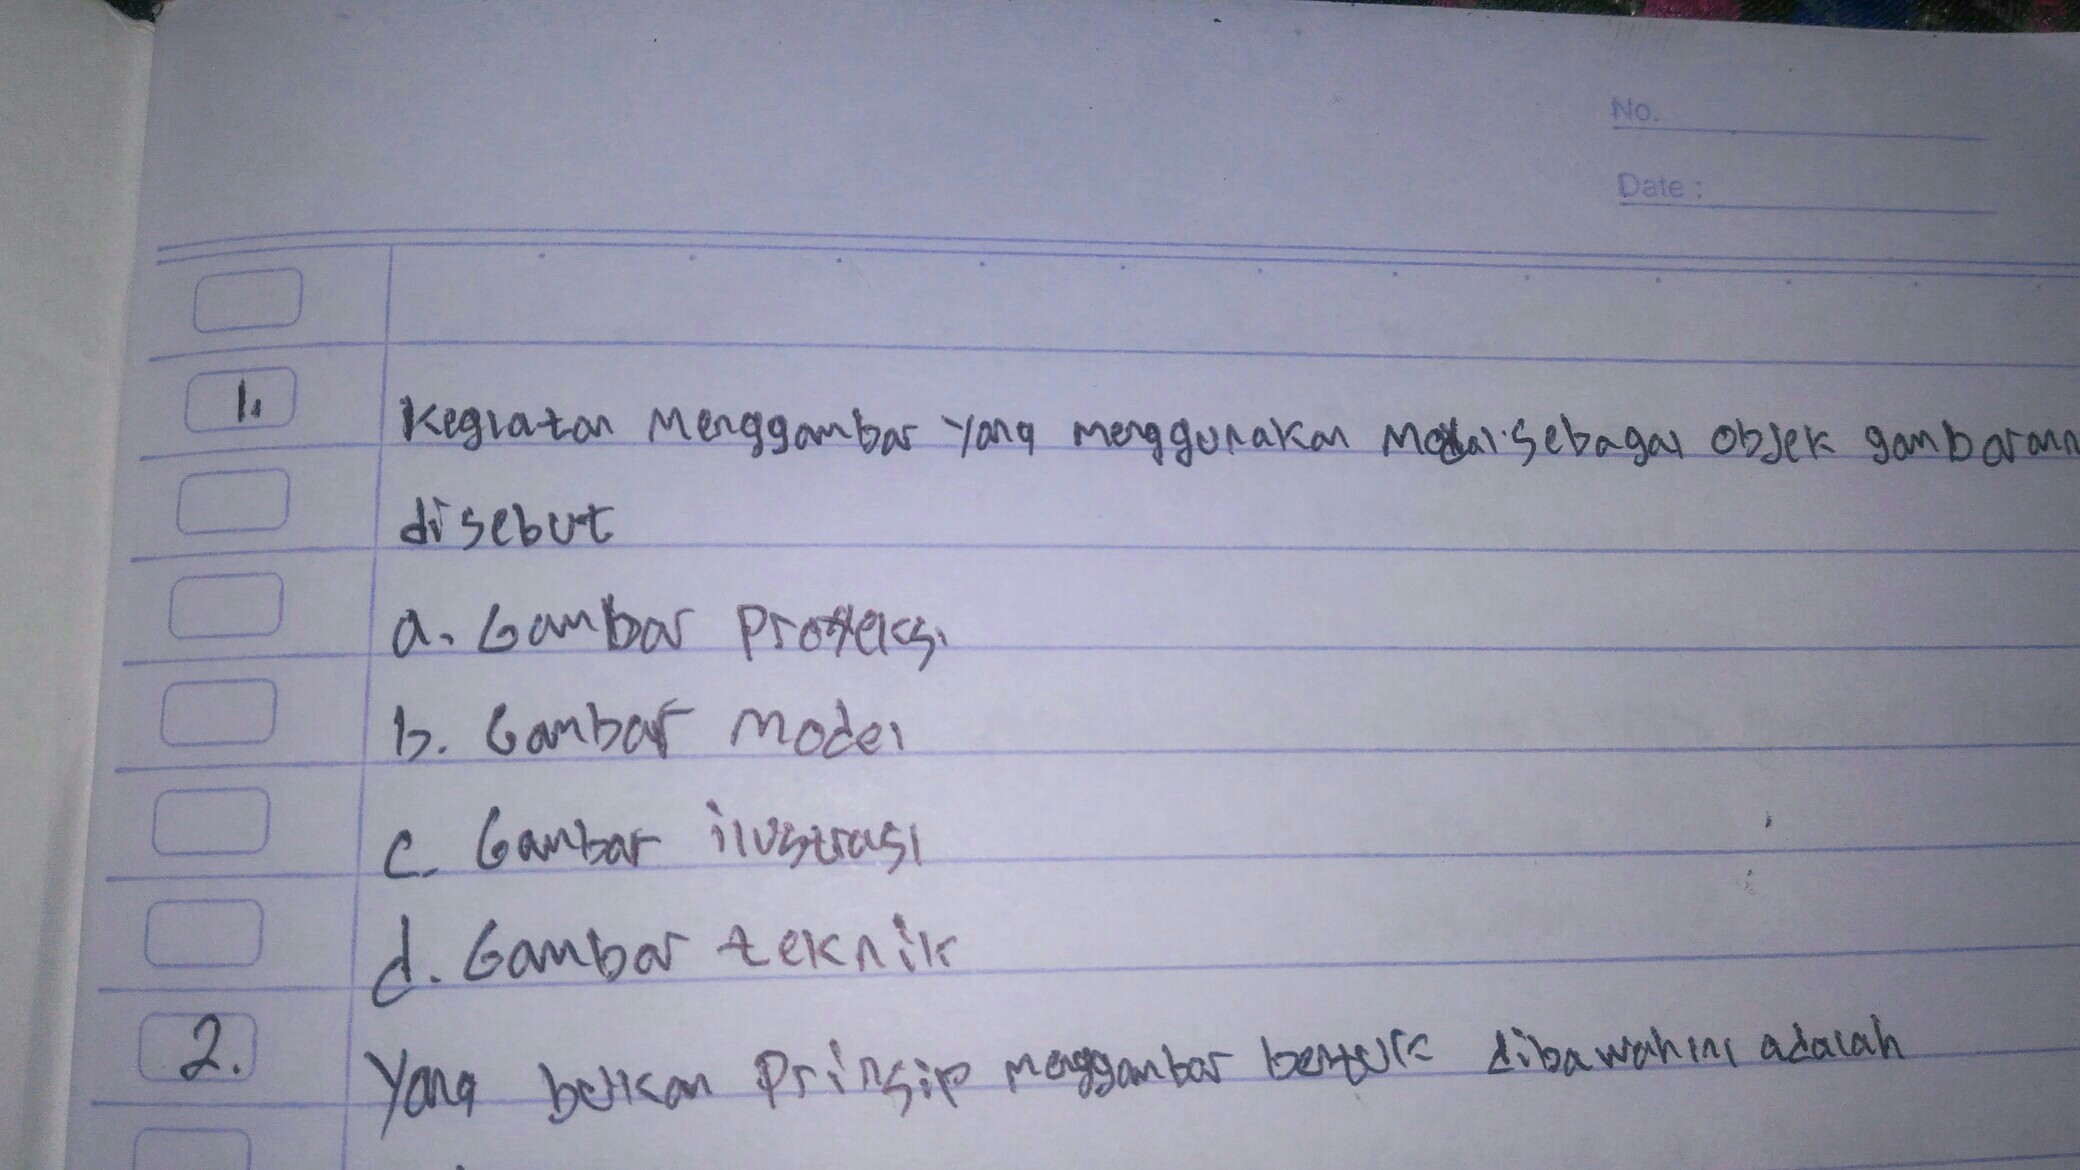 No.
Date :
1. Kegiatan Menggambar yang menggunakan sebagai objek gambarann
disebut
a. Gambar Proyeksi
b. Gambar model
c. Gambar ilustrasi
d. Gambar teknik
2. Yang bukan Prinsip menggambar bentuk dibawah ini adalah